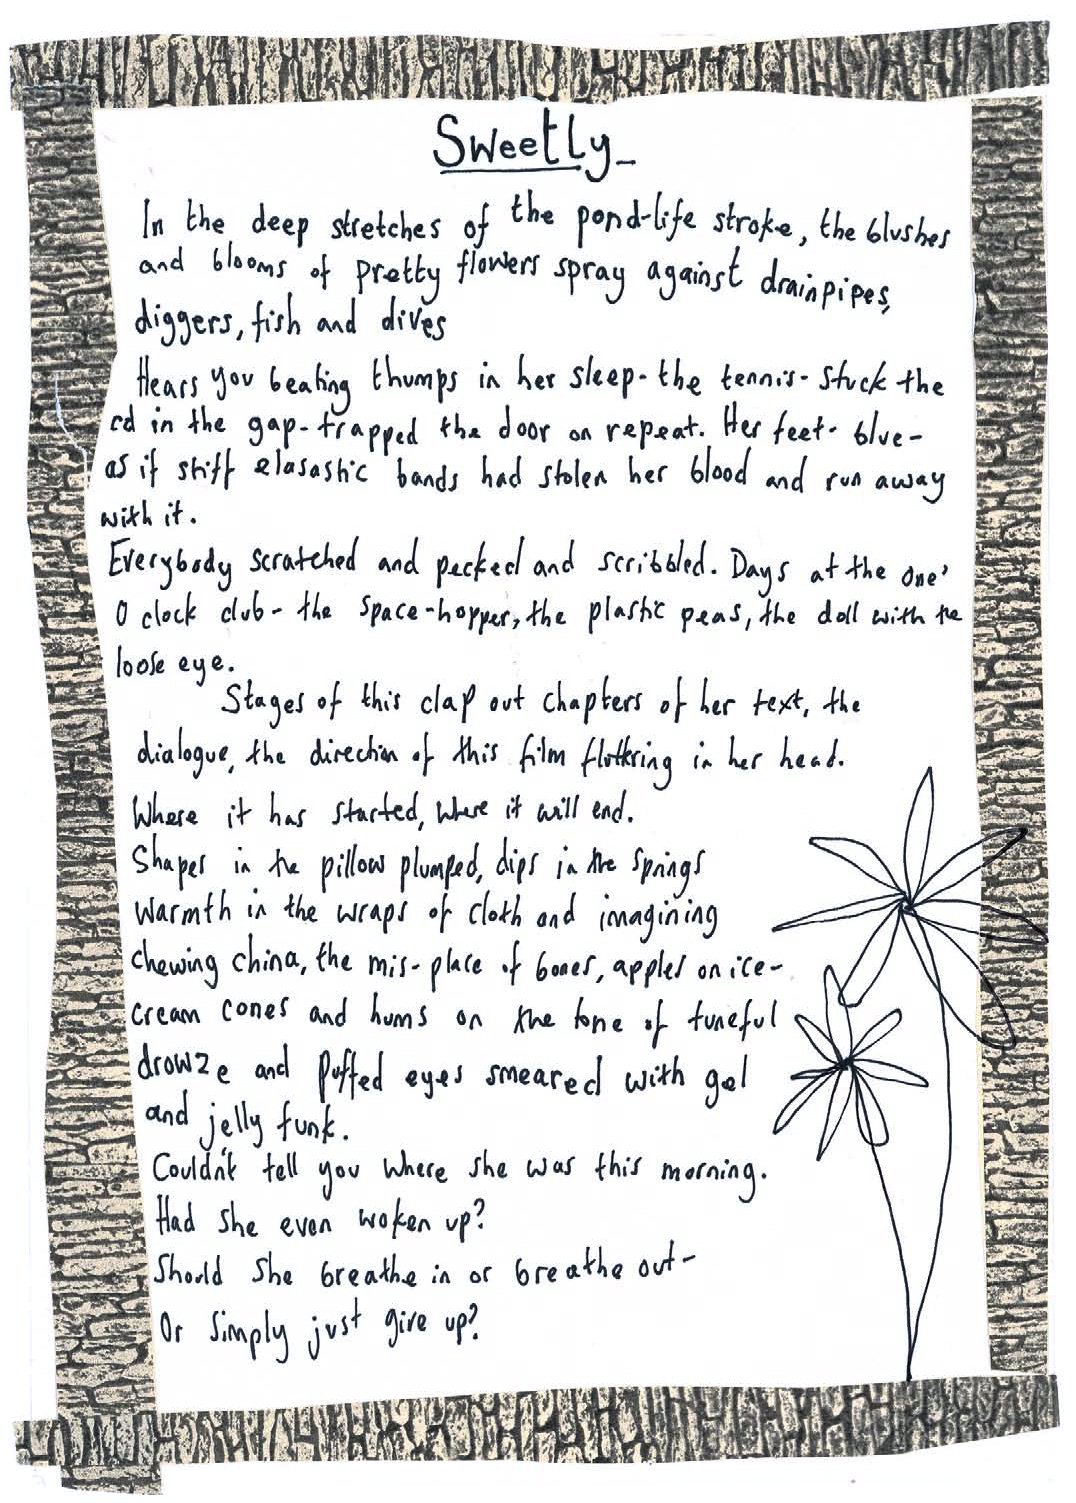 Sweetly_
In the deep stretches of the pond-life stroke, the blushes
and blooms of pretty flowers spray against drainpipes,
diggers, fish and dives
Hears you beating thumps in her sleep- the tennis- stuck the
cd in the gap- trapped the door on repeat. Her feet- blue-
as if stiff elasastic bands had stolen her blood and run away
with it.
Everybody scratched and pecked and scribbled. Days at the one'
O clock club- the space-hopper, the plastic peas, the doll with the
loose eye.
Stages of this clap out chapters of her text, the
dialogue, the direction of this film fluttering in her head.
Where it has started, where it will end.
Shapes in the pillow plumped, dips in the springs
warmth in the wraps of cloth and imagining
chewing china, the mis-place of bones, apples on ice-
cream cones and hums on the tone of tuneful
drowze and puffed eyes smeared with gel
and jelly funk.
Couldn't tell you where she was this morning.
Had she even woken up?
Should she breathe in or breathe out-
Or simply just give up?